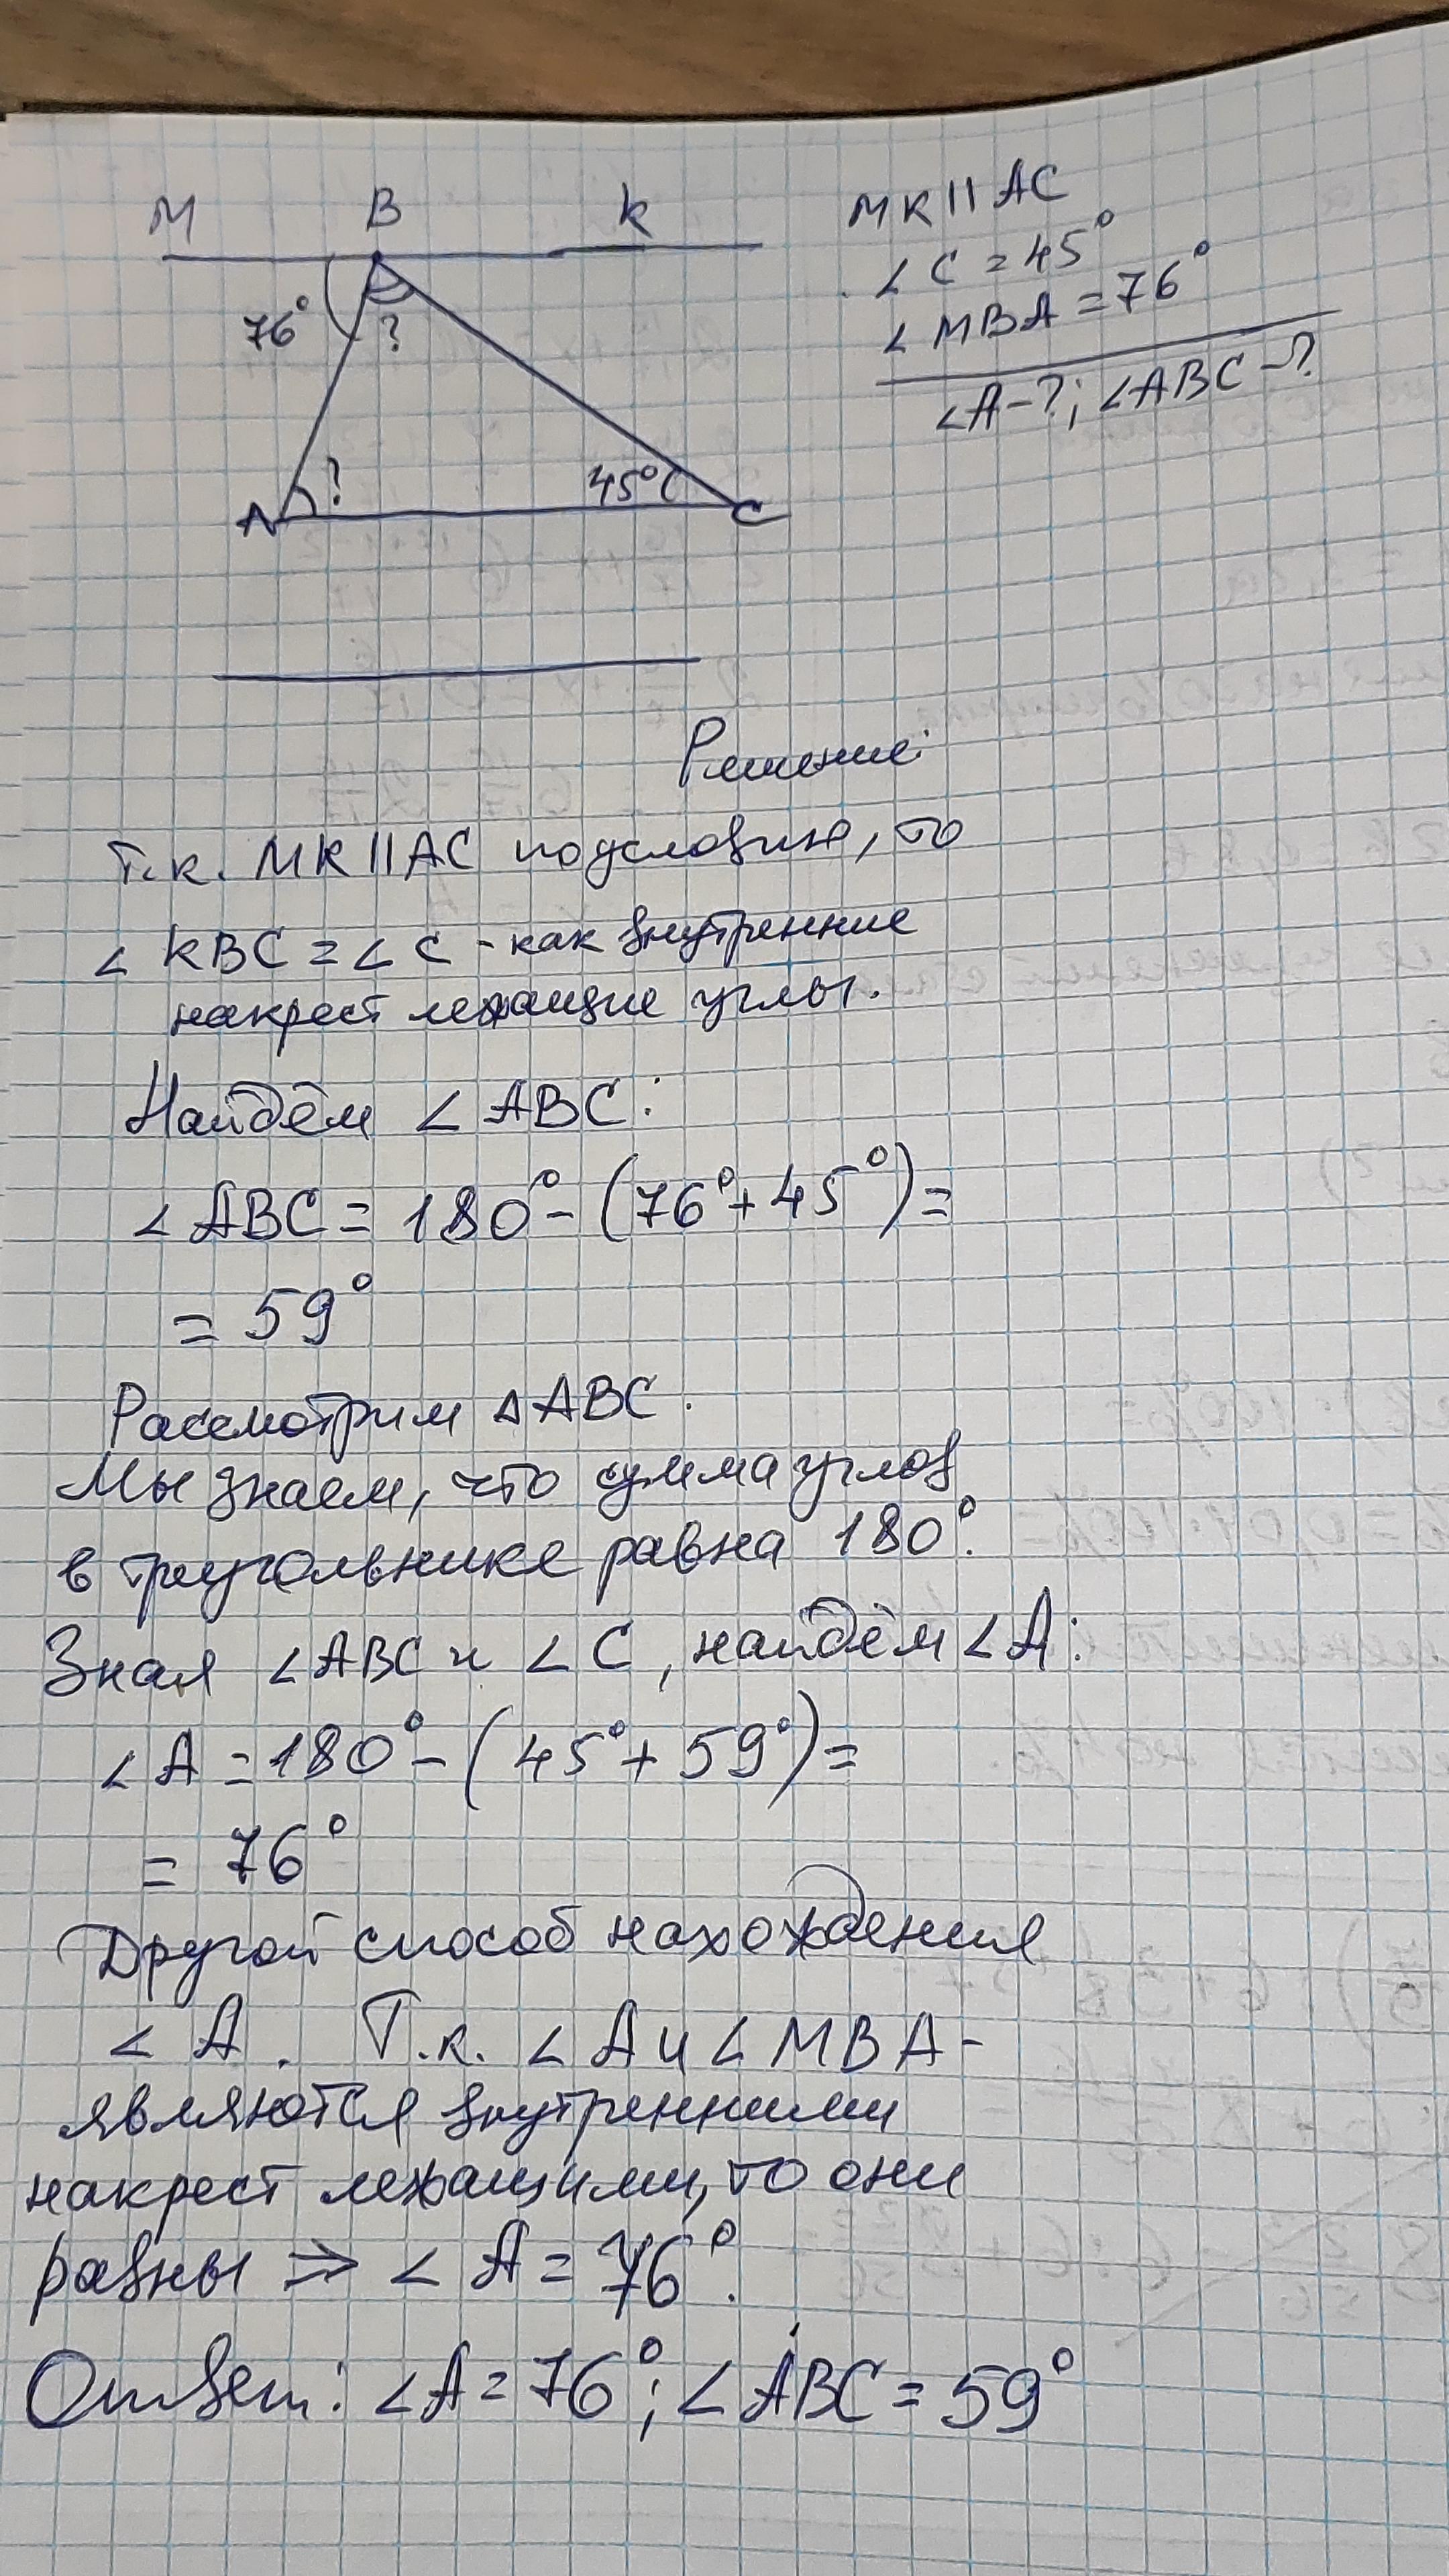 M B k
76°
?
?
45°
A C
MK || AC
∠C = 45°
∠MBA = 76°
∠A - ?; ∠ABC - ?
Решение:
Т.к. MK || AC по условию, то
∠KBC = ∠C - как внутренние
накрест лежащие углы.
Найдём ∠ABC:
∠ABC = 180° - (76° + 45°) =
= 59°
Рассмотрим △ABC.
Мы знаем, что сумма углов
в треугольнике равна 180°.
Зная ∠ABC и ∠C, найдём ∠A:
∠A = 180° - (45° + 59°) =
= 76°
Другой способ нахождения
∠A. Т.к. ∠A и ∠MBA -
являются внутренними
накрест лежащими, то они
равны ⇒ ∠A = 76°.
Ответ: ∠A = 76°; ∠ABC = 59°